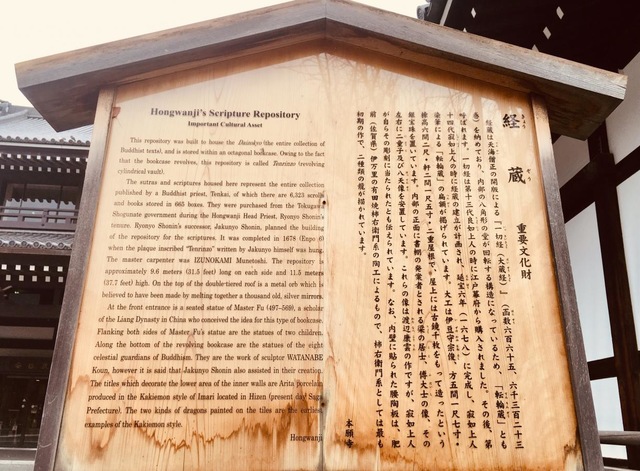 Hongwanji's Scripture Repository
Important Cultural Asset
This repository was built to house the Daizokyo (the entire collection of
Buddhist texts), and is stored within an octagonal bookcase. Owing to the fact
that the bookcase revolves, this repository is called Tenrinzo (revolving
cylindrical vault).
The sutras and scriptures housed here represent the entire collection
published by a Buddhist priest, Tenkai, of which there are 6,323 scrolls
and books stored in 665 boxes. They were purchased from the Tokugawa
Shogunate government during the Hongwanji Head Priest, Ryonyo Shonin's
tenure. Ryonyo Shonin's successor, Jakunyo Shonin, planned the building
of the repository for the scriptures. It was completed in 1678 (Enpo 6)
when the plaque inscribed "Tenrinzo" written by Jakunyo himself was hung.
The master carpenter was IZUNOKAMI Munetoshi. The repository is
approximately 9.6 meters (31.5 feet) long on each side and 11.5 meters
(37.7 feet) high. On the top of the double-tiered roof is a metal orb which is
believed to have been made by melting together a thousand old, silver mirrors.
At the front entrance is a seated statue of Master Fu (497–569), a scholar
of the Liang Dynasty in China who conceived the idea for this type of bookcase.
Flanking both sides of Master Fu's statue are the statues of two children.
Along the bottom of the revolving bookcase are the statues of the eight
celestial guardians of Buddhism. They are the work of sculptor WATANABE
Koun, however it is said that Jakunyo Shonin also assisted in their creation.
The titles which decorate the lower area of the inner walls are Arita porcelain
produced in the Kakiemon style of Imari located in Hizen (present day Saga
Prefecture). The two kinds of dragons painted on the tiles are the earliest
examples of the Kakiemon style.
Hongwanji
経蔵 重要文化財
きょう ぞう
経蔵は天海僧正の開版による「一切経(大蔵経)」(函数六百六十五、六千三百二十三
巻)を納めており、内部の八角形の堂が回転する構造になっているため、「転輪蔵」とも
呼ばれます。一切経は第十三代良如上人の時に江戸幕府から購入されました。その後、第
十四代寂如上人の時に経蔵の建立が計画され、延宝六年(一六七八)に完成し、寂如上人
染筆による「転輪蔵」の扁額が掲げられています。大工は伊豆守宗俊、方五間一尺七寸・
棟高六間二尺・軒二間一尺五寸・二重屋根で、屋上には古鏡千枚をもって造ったという
銀宝珠を置いています。内部の正面に書棚の発案者とされる梁の居士、傅大士の像、その
左右に二童子及び八天像を安置しています。これらの像は渡辺康雲の作ですが、寂如上人
が自らその彫刻に当たられたとも伝えられています。なお、内壁に貼られた腰陶板は、肥
前(佐賀県)伊万里の有田焼柿右衛門系の陶工によるもので、柿右衛門系としては最も
初期の作で、二種類の龍が描かれています。
本願寺